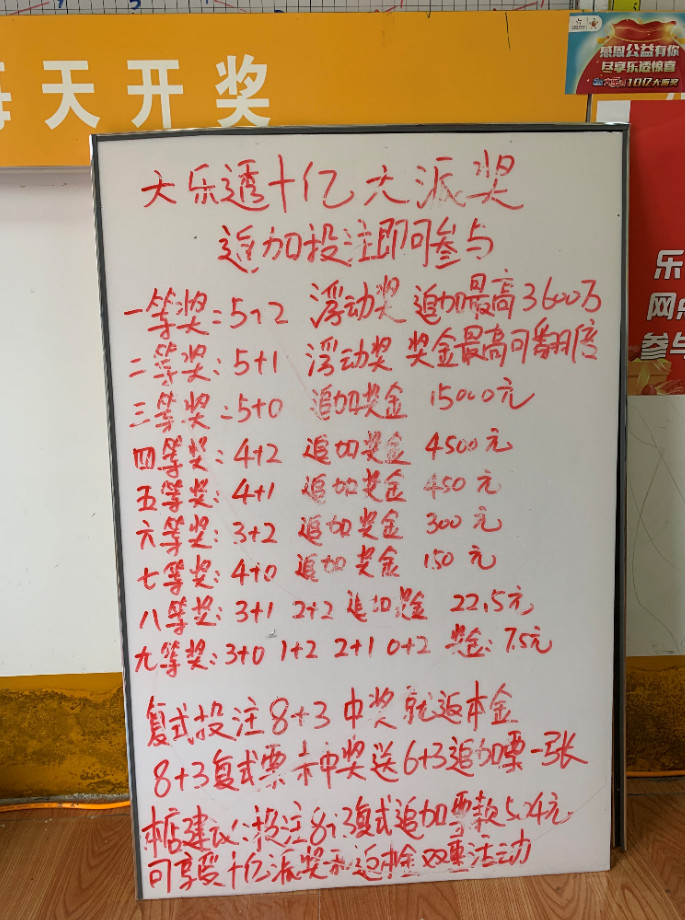 每天开奖
感恩公益有你
尽享乐透惊喜
10亿大派奖
大乐透十亿大派奖
追加投注即可参与
一等奖:5+2 浮动奖 追加最高3600万
二等奖:5+1 浮动奖 奖金最高可翻倍
三等奖:5+0 追加奖金 15000元
四等奖:4+2 追加奖金 4500元
五等奖:4+1 追加奖金 450元
六等奖:3+2 追加奖金 300元
七等奖:4+0 追加奖金 150元
八等奖:3+1 2+2 追加奖金 22.5元
九等奖:3+0 1+2 2+1 0+2 奖金:7.5元
复式投注8+3中奖就返本金
8+3复式票未中奖送6+3追加票一张
本店建议:投注8+3复式追加票款504元
可享受十亿派奖和返本金双重活动
乐
网点
参与